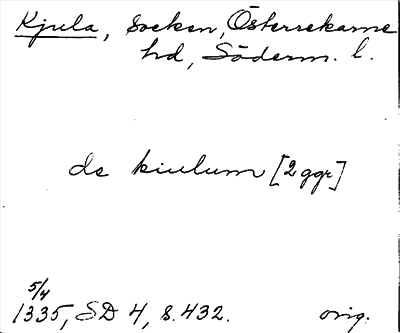 Kjula, socken, Österrekarne
hd, Söderm. l.
de kiulum [2 ggr]
5/4
1335, SD 4, s. 432. orig.